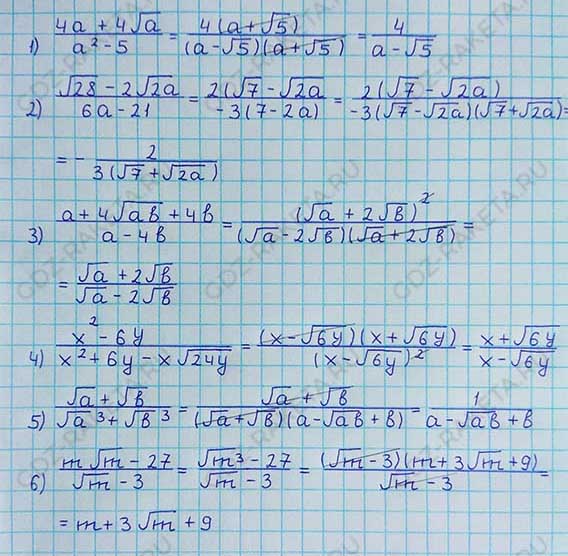 1) (4a + 4√a)/(a² - 5) = (4(a + √5))/((a - √5)(a + √5)) = 4/(a - √5)
2) (√28 - 2√2a)/(6a - 21) = (2(√7 - √2a)/(-3(7 - 2a)) = (2(√7 - √2a))/(-3(√7 - √2a)(√7 + √2a)) =
= - 2/(3(√7 + √2a))
3) (a + 4√ab + 4b)/(a - 4b) = (√a + 2√b)²/((√a - 2√b)(√a + 2√b)) =
= (√a + 2√b)/(√a - 2√b)
4) (x² - 6y)/(x² + 6y - x√24y) = ((x - √6y)(x + √6y))/(x - √6y)² = (x + √6y)/(x - √6y)
5) (√a + √b)/(√a³ + √b³) = (√a + √b)/((√a + √b)(a - √ab + b)) = 1/(a - √ab + b)
6) (m√m - 27)/(√m - 3) = (√m³ - 27)/(√m - 3) = ((√m - 3)(m + 3√m + 9))/(√m - 3) =
= m + 3√m + 9
GDZ-RAKETA.RU